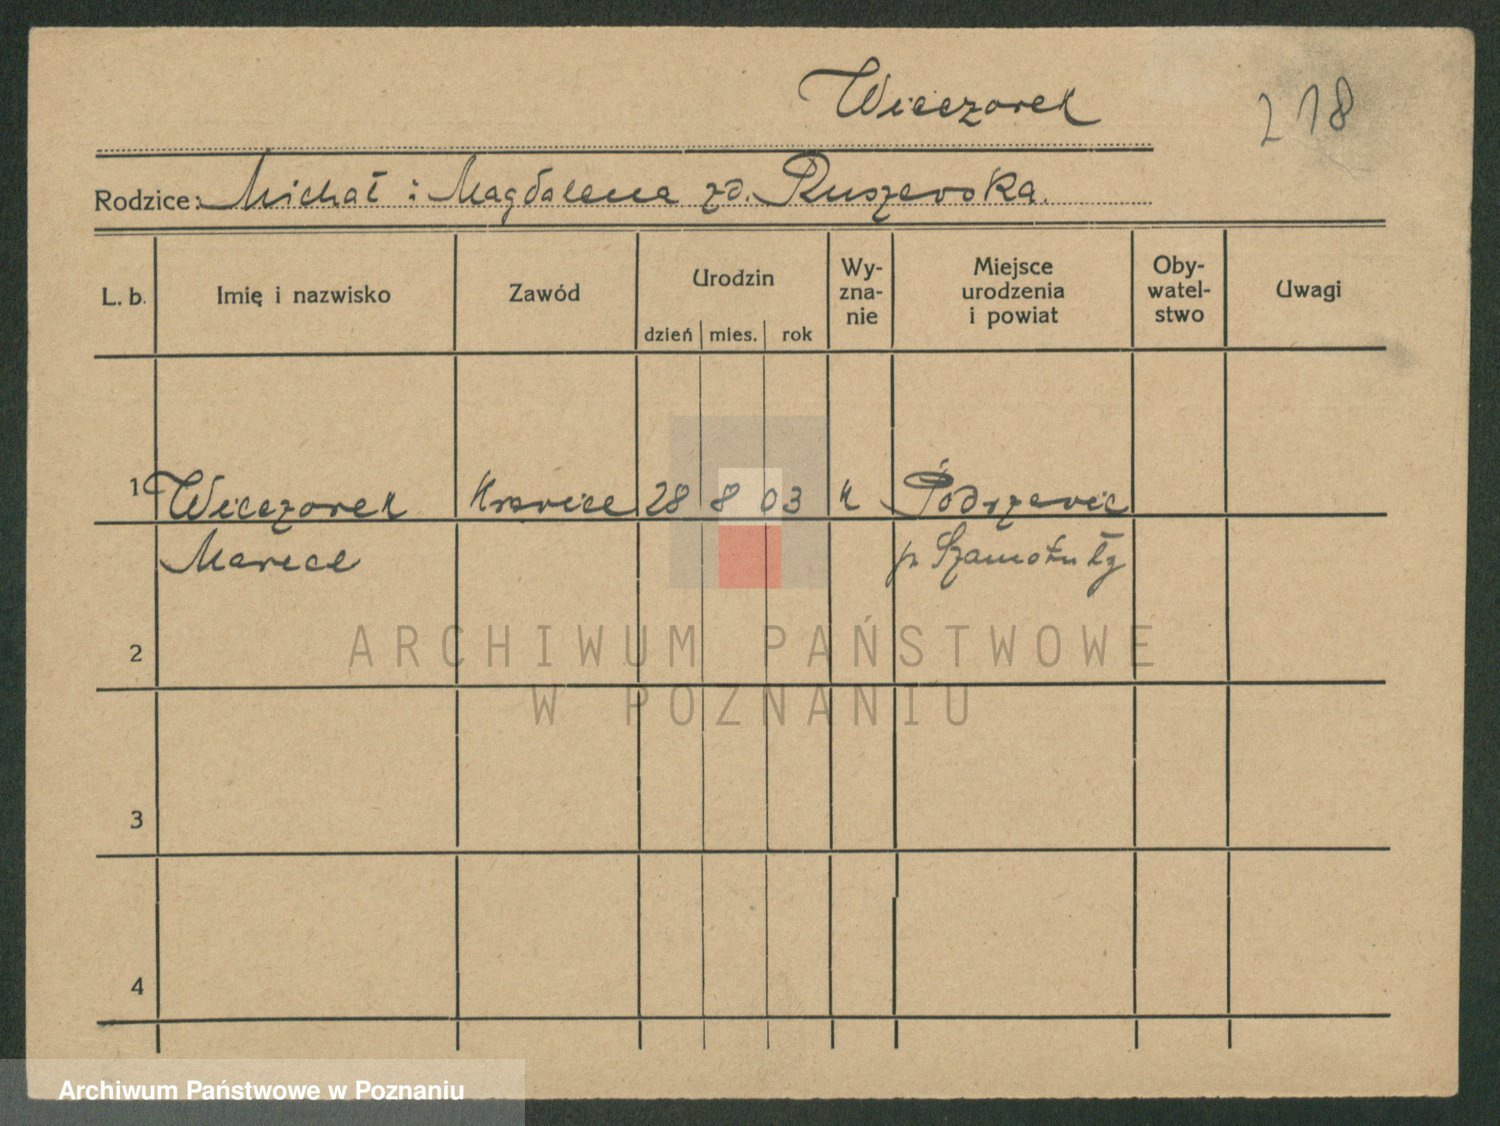 Wieczorek
218
Rodzice: Michał i Magdalena zd. Ruszewska.
L. b. Imię i nazwisko Zawód Urodzin dzień mies. rok Wy-zna-nie Miejsce urodzenia i powiat Oby-watel-stwo Uwagi
1 Wieczorek Krawiec 28 8 03 k
Marcel p. Szamotuły
2
3
4
ARCHIWUM PAŃSTWOWE
W POZNANIU
Archiwum Państwowe w Poznaniu